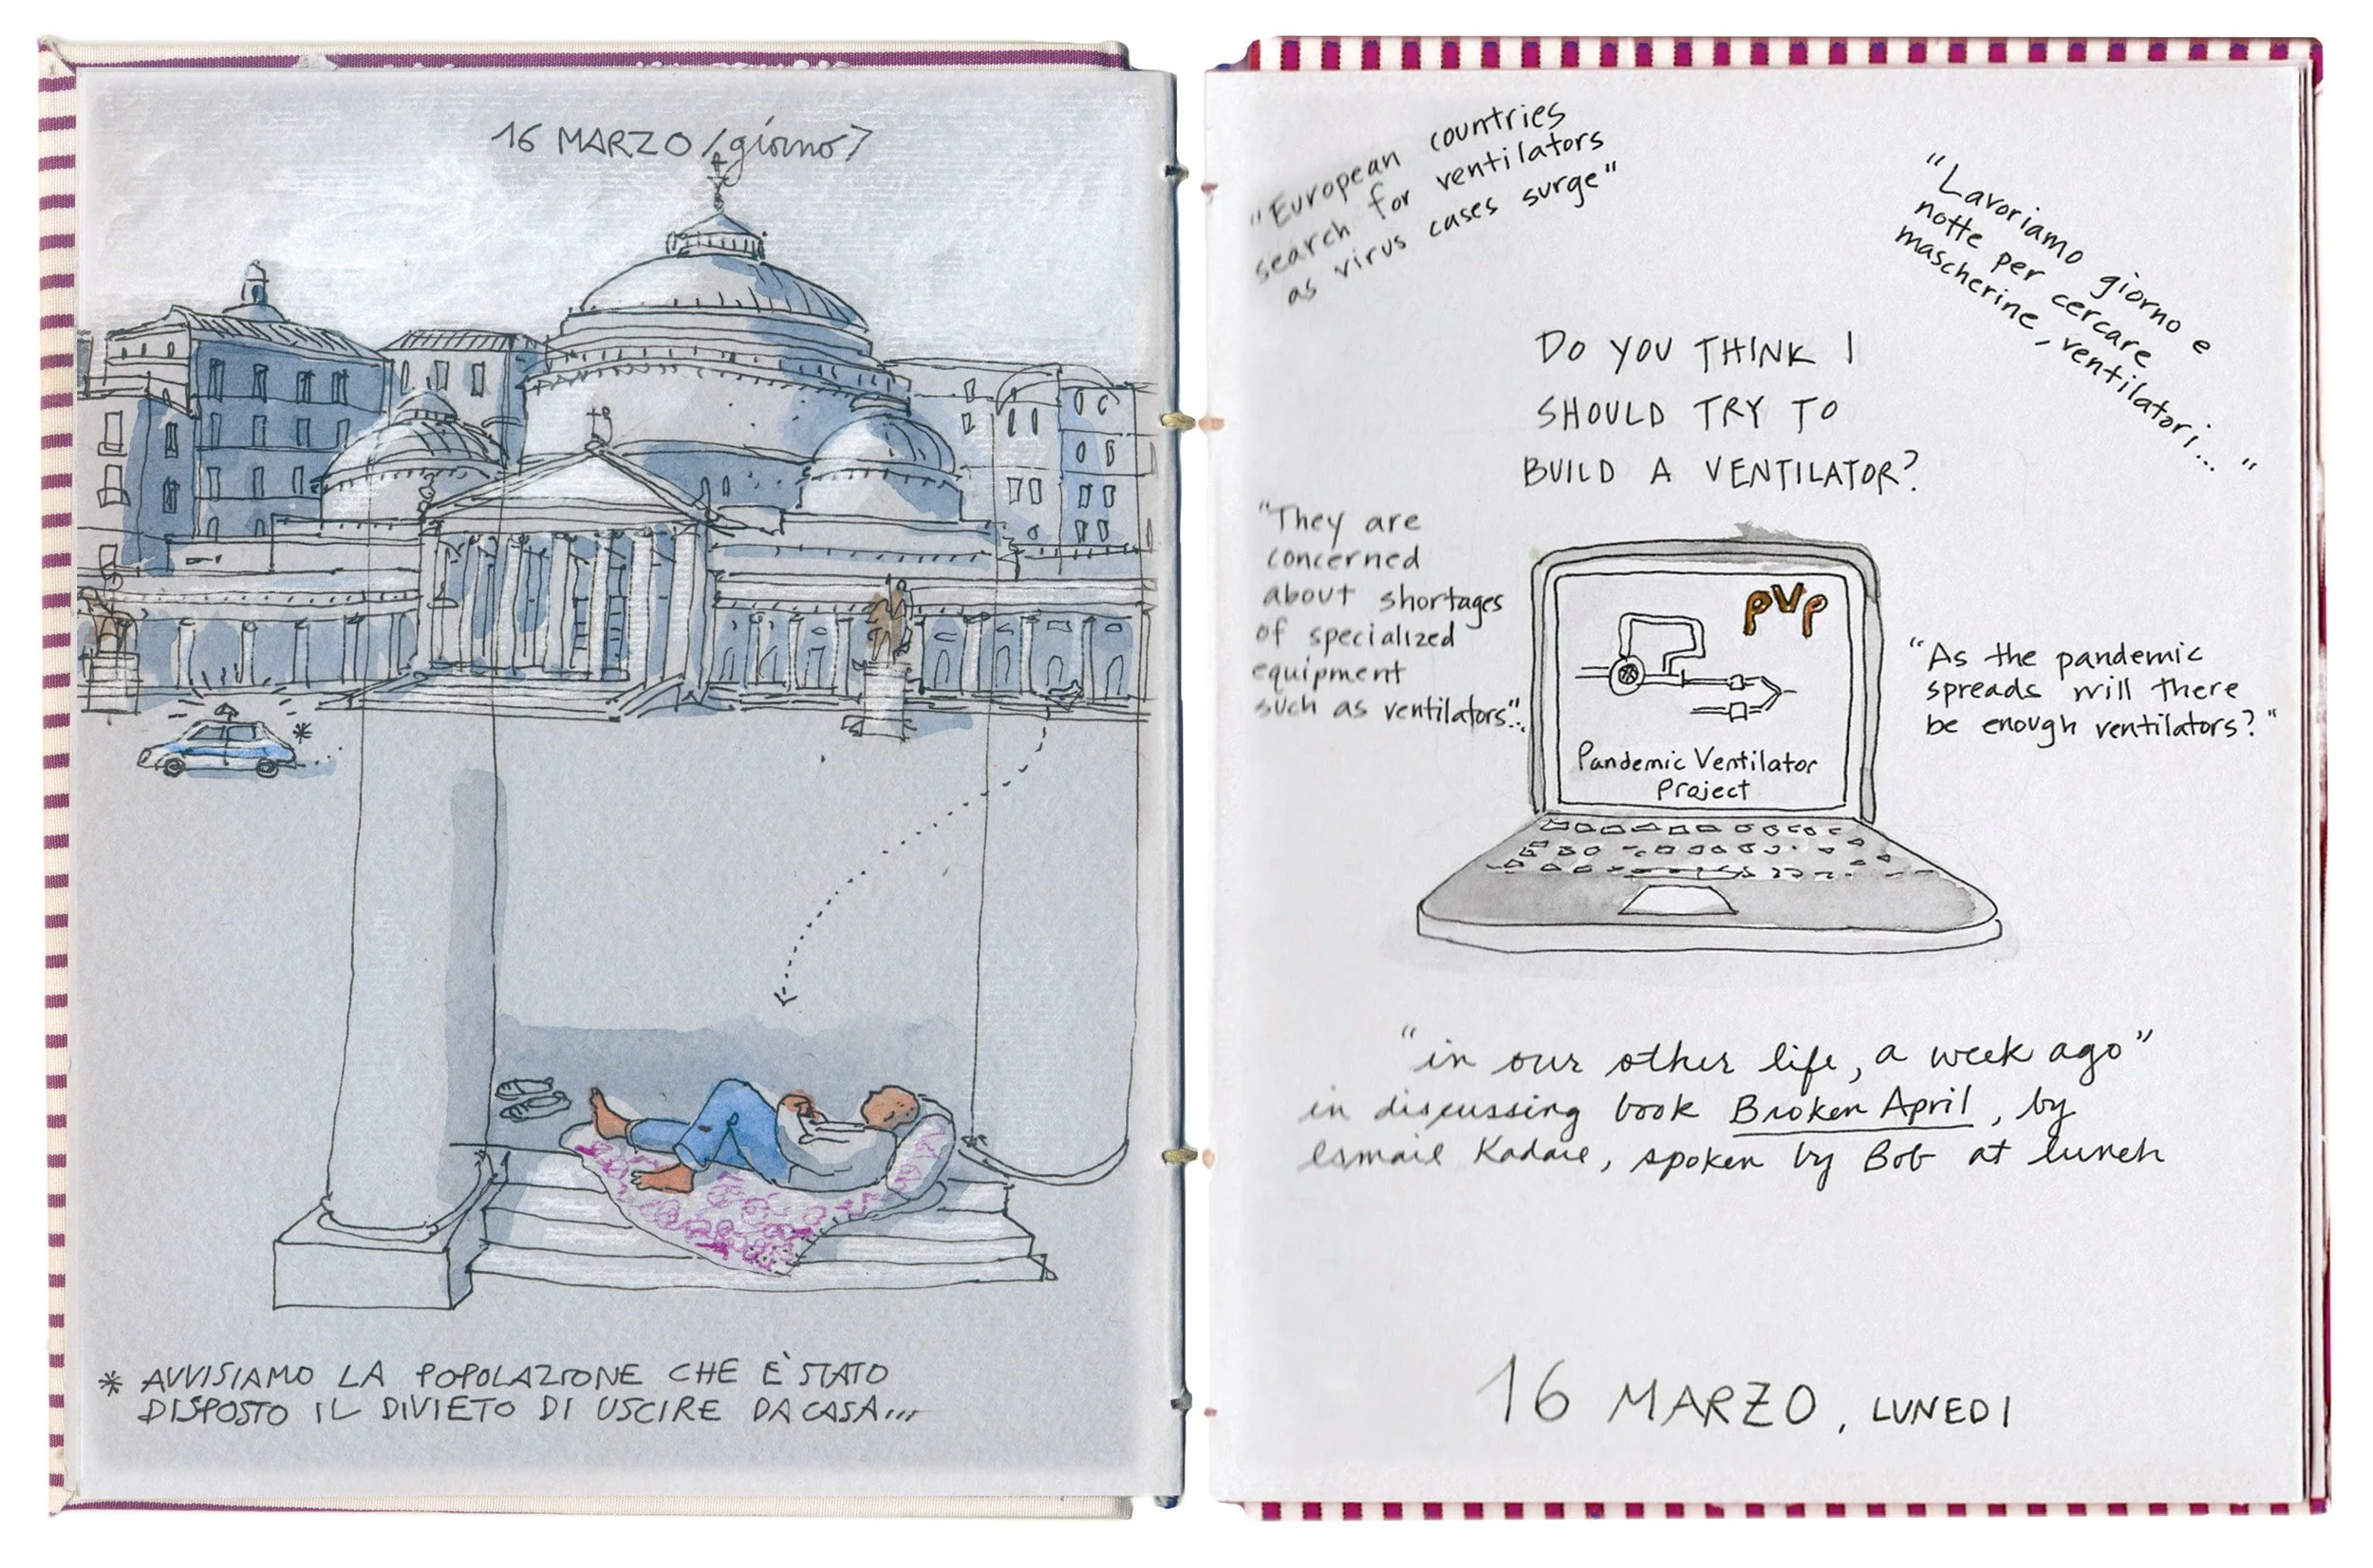 16 MARZO (giorno)
* AVVISIAMO LA POPOLAZIONE CHE È STATO
DISPOSTO IL DIVIETO DI USCIRE DA CASA...
"European countries
search for ventilators
as virus cases surge"
"Lavoriamo giorno e
notte per cercare
mascherine, ventilatori... "
DO YOU THINK I
SHOULD TRY TO
BUILD A VENTILATOR?
"They are
concerned
about shortages
of specialized
equipment
such as ventilators"..
PVP
Pandemic Ventilator
Project
"As the pandemic
spreads will there
be enough ventilators?"
"in our other life, a week ago"
in discussing book Broken April, by
Esmail Kadare, spoken by Bob at lunch
16 MARZO, LUNEDI